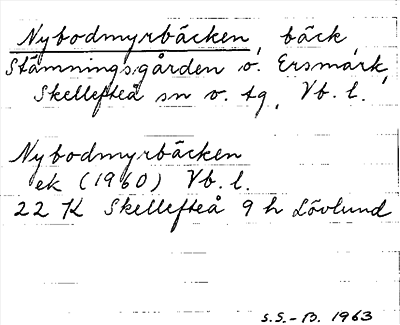 Nybodmyrbäcken, bäck,
Stämningsgården o. Ersmark,
Skellefteå sn o. tg, Vb. l.
Nybodmyrbäcken
ek (1960) Vb. l.
22 K Skellefteå 9 h Lövlund
S.S.-B. 1963